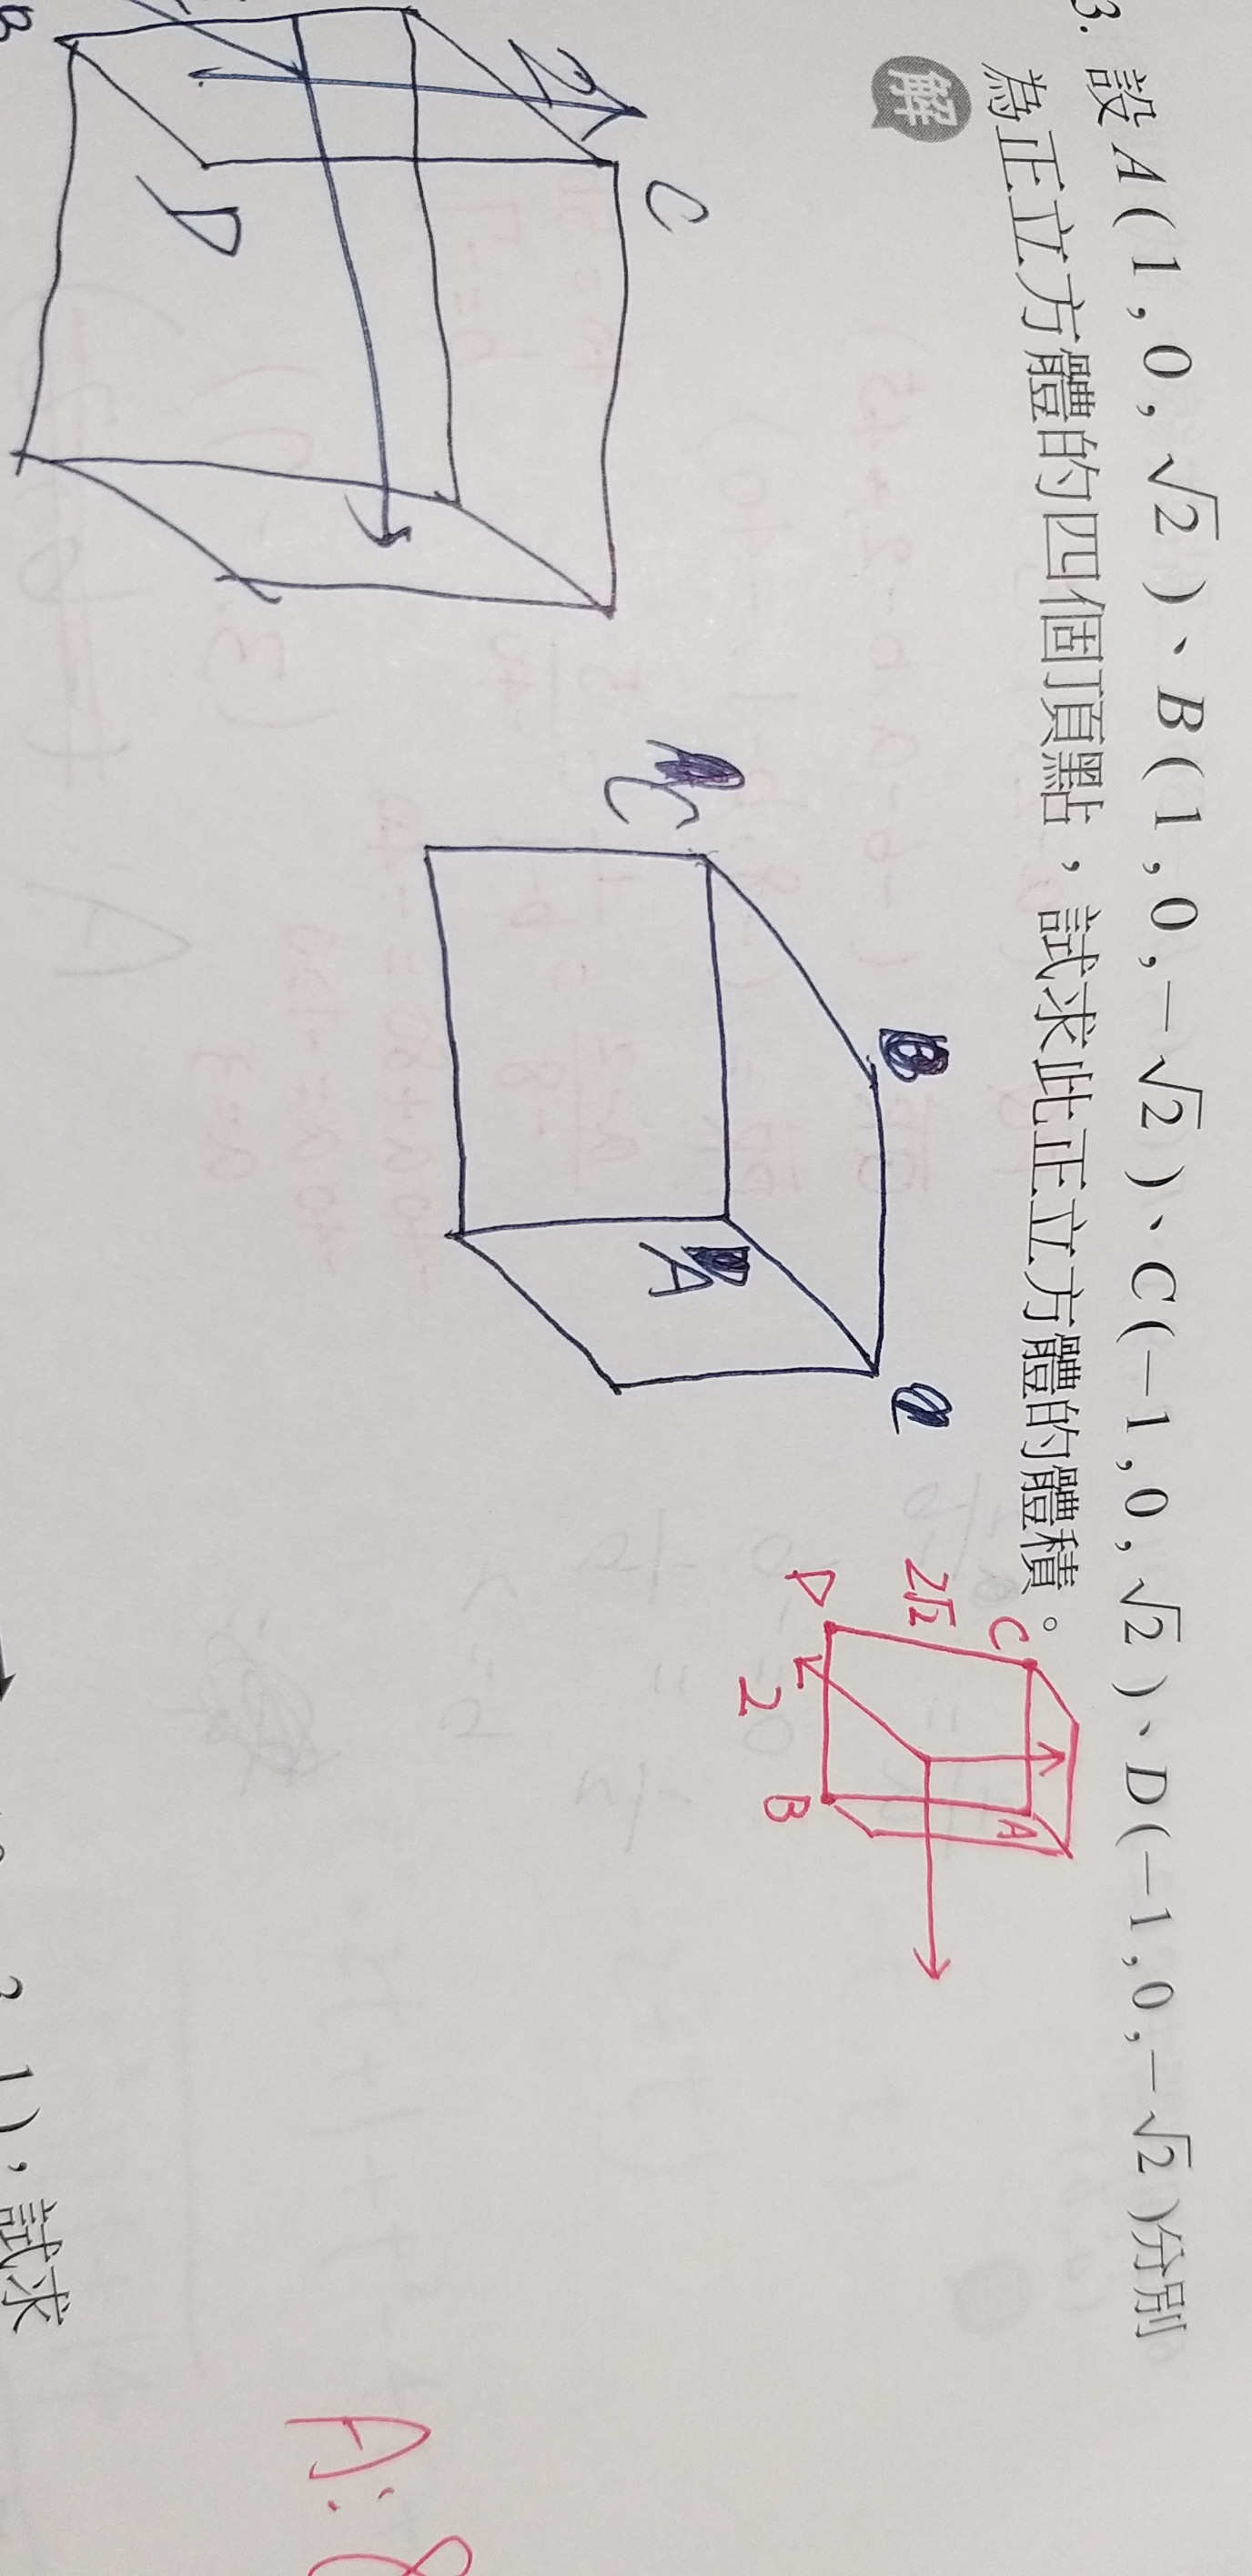 3. 設A(1,0,√2)、B(1,0,-√2)、C(-1,0,√2)、D(-1,0,-√2)分別
為正立方體的四個頂點,試求此正立方體的體積。
解
C
2√2
A
D
2
B
C
B
A
C
D
B
1),試求
A:8